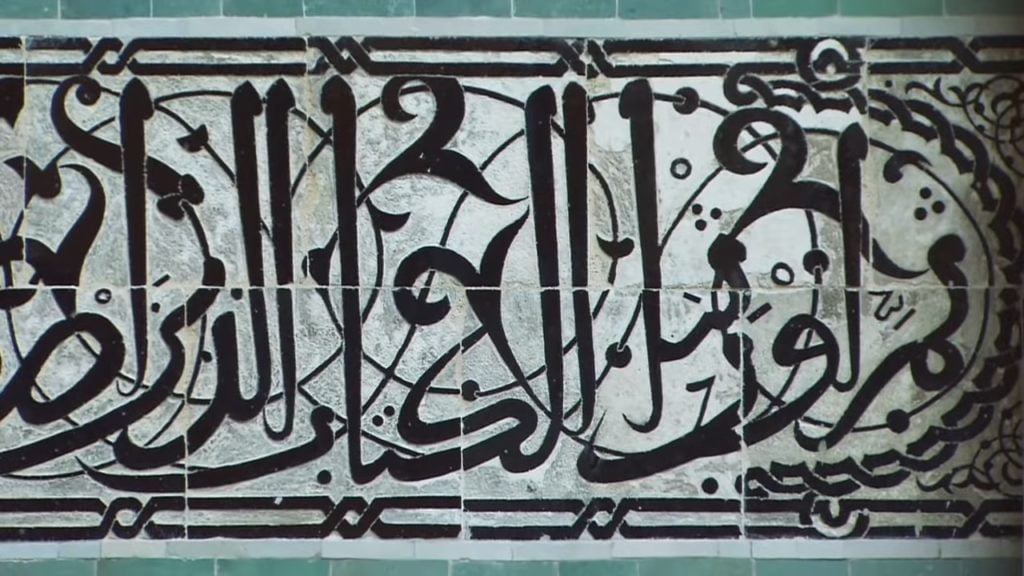 ثم أورثنا الكتاب الذين